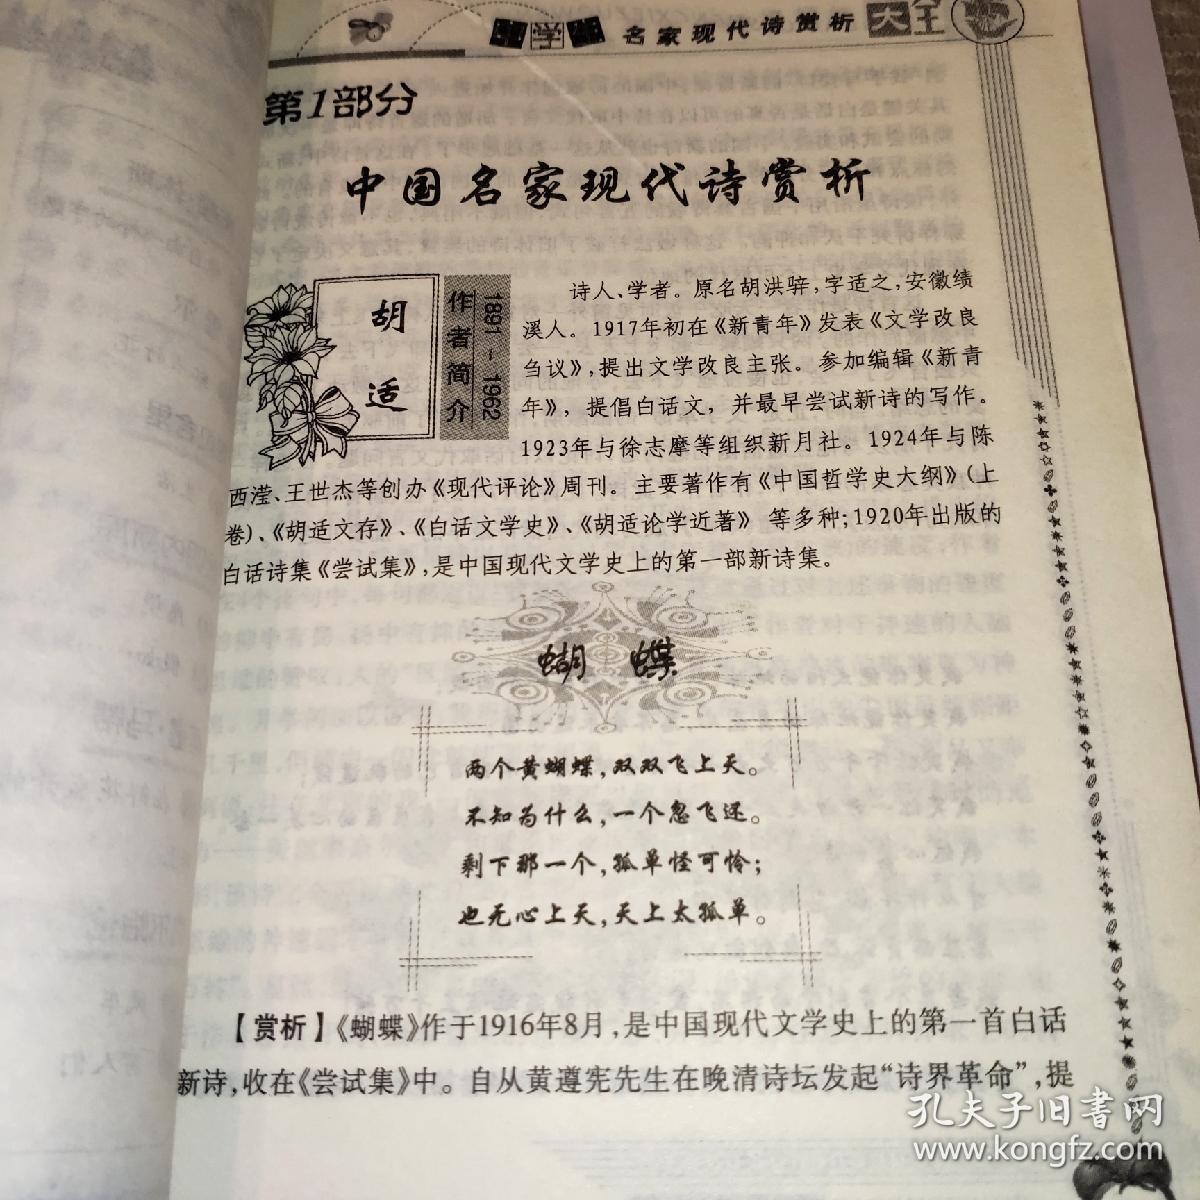 中学生名家现代诗赏析大全
第1部分
中国名家现代诗赏析
胡适
作者简介
1891-1962
诗人、学者。原名胡洪骍,字适之,安徽绩
溪人。1917年初在《新青年》发表《文学改良
刍议》,提出文学改良主张。参加编辑《新青
年》,提倡白话文,并最早尝试新诗的写作。
1923年与徐志摩等组织新月社。1924年与陈
西滢、王世杰等创办《现代评论》周刊。主要著作有《中国哲学史大纲》(上
卷)、《胡适文存》、《白话文学史》、《胡适论学近著》 等多种;1920年出版的
白话诗集《尝试集》,是中国现代文学史上的第一部新诗集。
蝴 蝶
两个黄蝴蝶,双双飞上天。
不知为什么,一个忽飞还。
剩下那一个,孤单怪可怜;
也无心上天,天上太孤单。
【赏析】《蝴蝶》作于1916年8月,是中国现代文学史上的第一首白话
新诗,收在《尝试集》中。自从黄遵宪先生在晚清诗坛发起“诗界革命”,提
孔夫子旧书网
www.kongfz.com